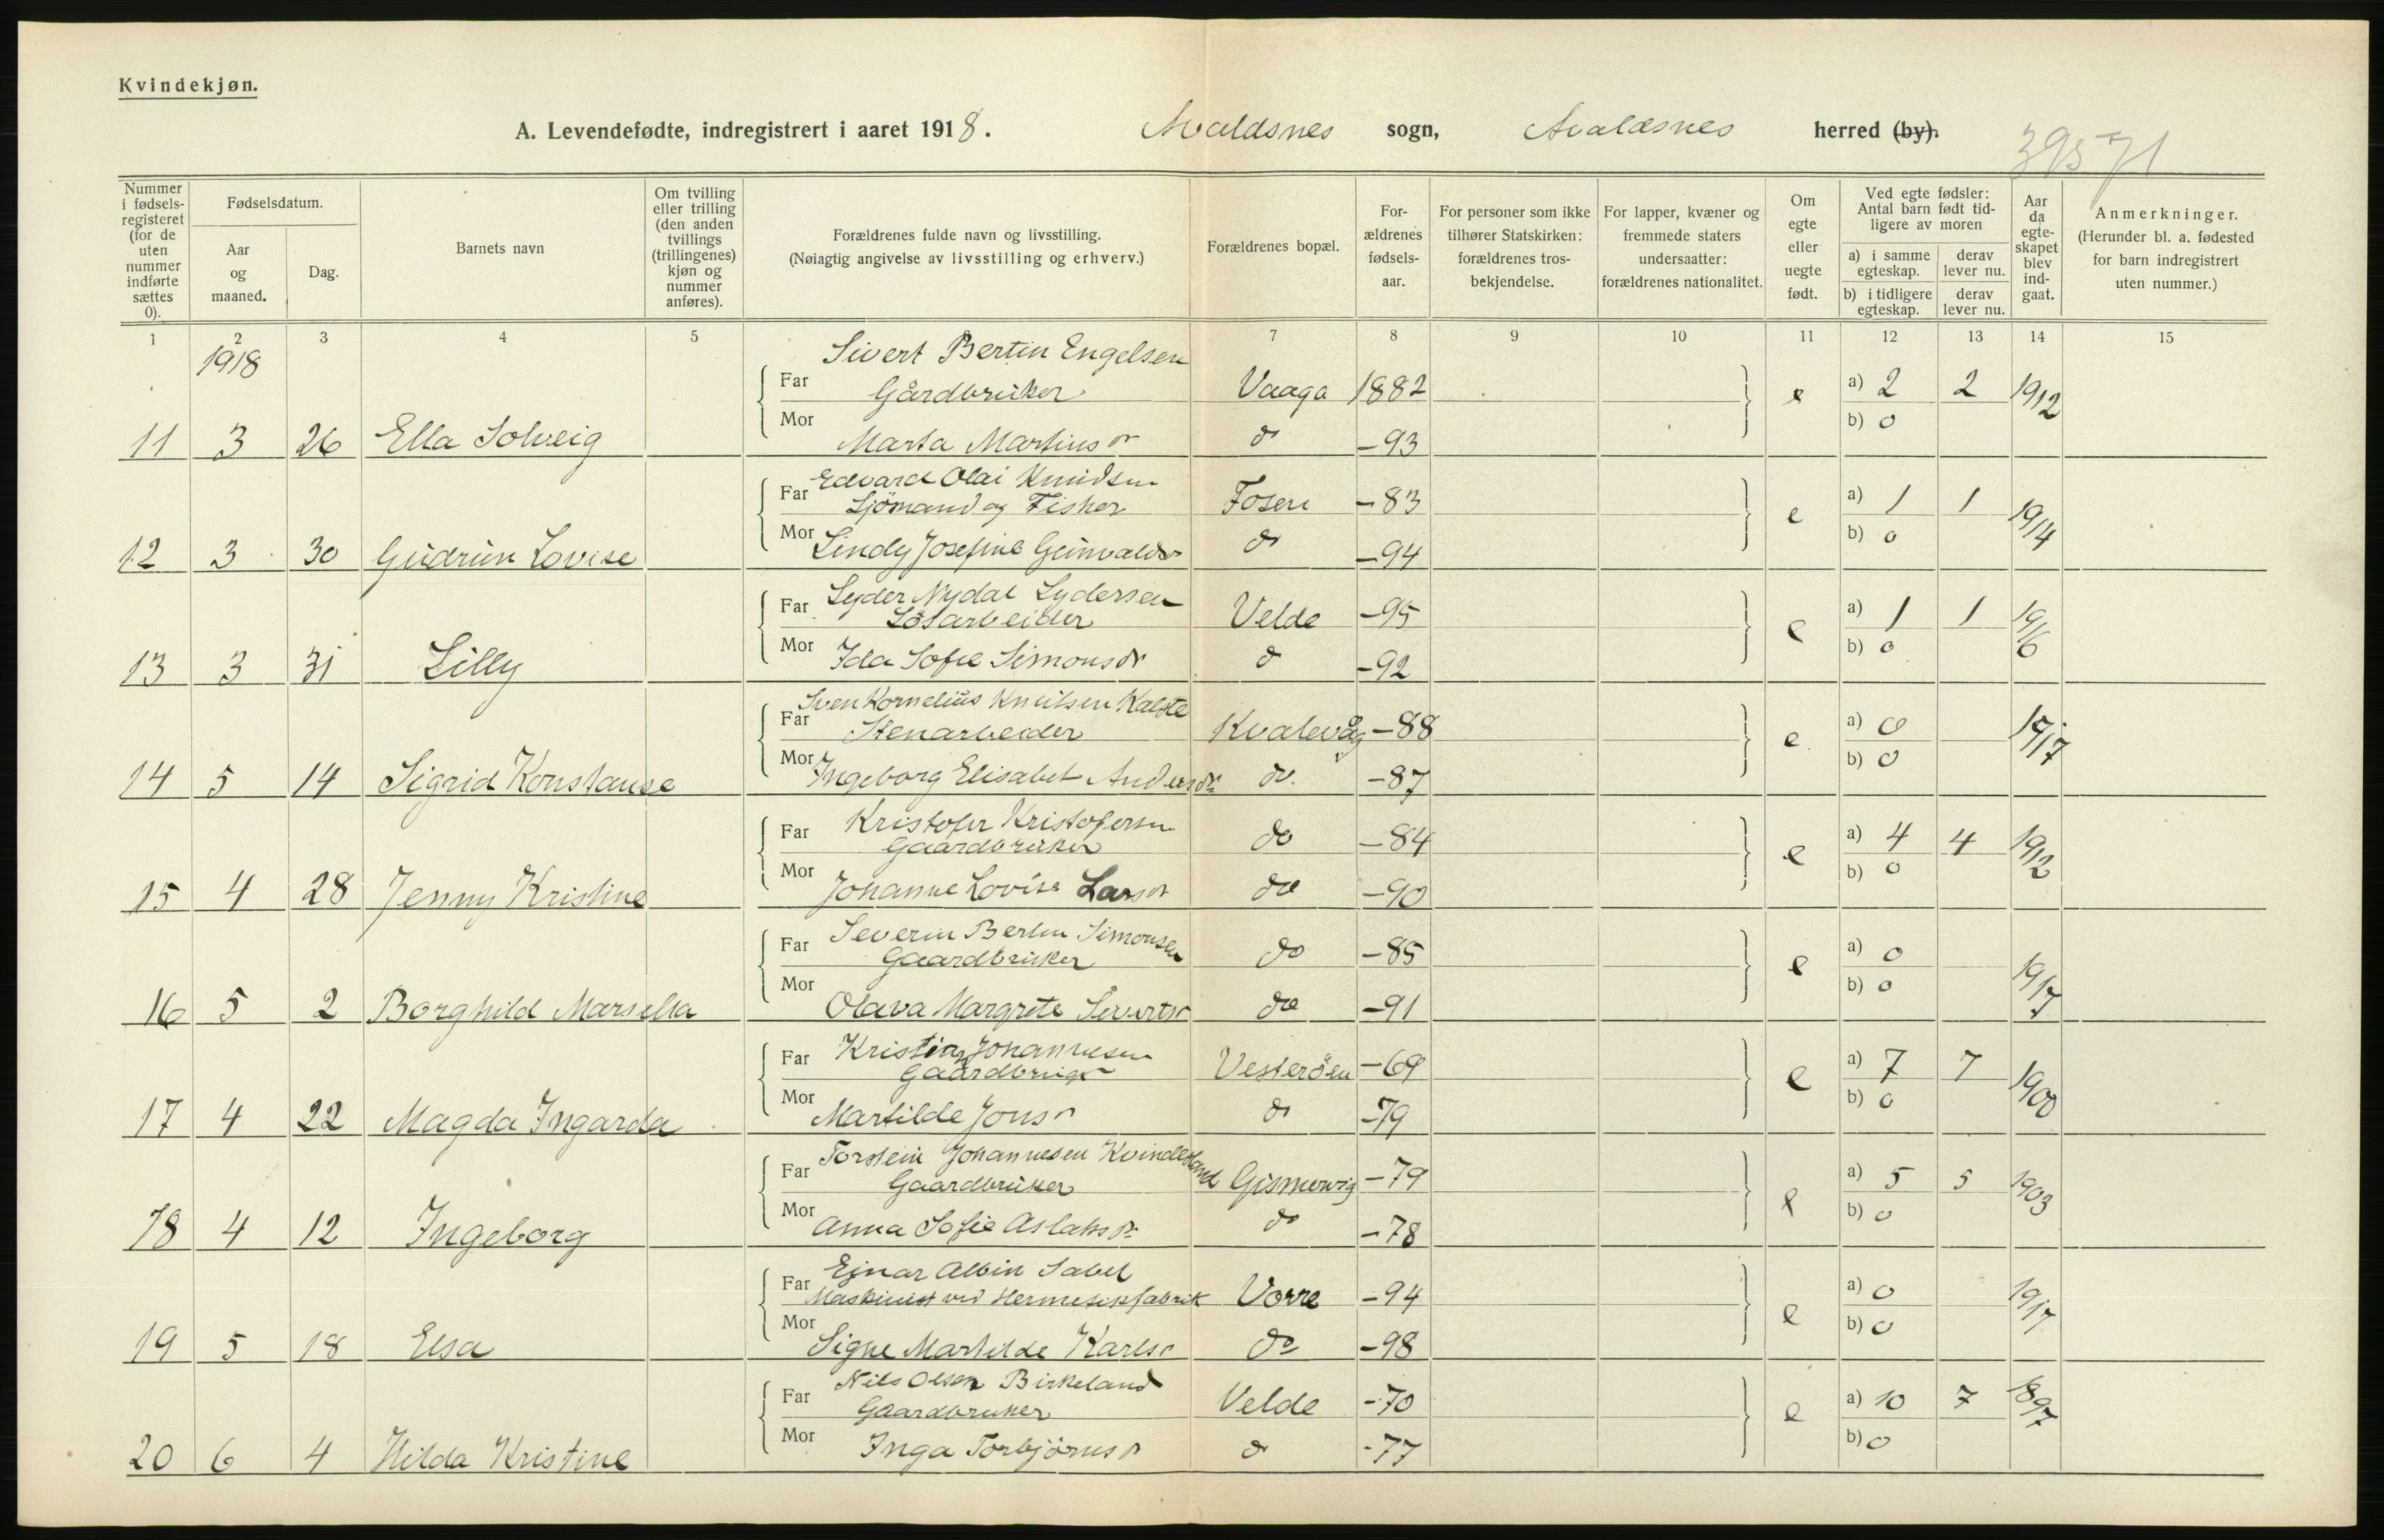 Kvindekjøn.
A. Levendefødte, indregistrert i aaret 1918. Avaldsnes sogn, Avaldsnes herred (by).
39571
Nummer i fødselsregisteret (for de uten nummer indførte sættes 0).
Fødselsdatum.
Aar og maaned.
Dag.
Barnets navn
Om tvilling eller trilling (den anden tvillings (trillingenes) kjøn og nummer anføres).
Forældrenes fulde navn og livsstilling.
(Nøiagtig angivelse av livsstilling og erhverv.)
Forældrenes bopæl.
Forældrenes fødselsaar.
For personer som ikke tilhører Statskirken: forældrenes trosbekjendelse.
For lapper, kvæner og fremmede staters undersaatter: forældrenes nationalitet.
Om egte eller uegte født.
Ved egte fødsler: Antal barn født tidligere av moren
a) i samme egteskap.
derav lever nu.
b) i tidligere egteskap.
derav lever nu.
Aar da egteskapet blev indgaat.
Anmerkninger.
(Herunder bl. a. fødested for barn indregistrert uten nummer.)
1 2 3 4 5 6 7 8 9 10 11 12 13 14 15
1918
Sivert Bertin Engelsen
Far Gårdbruker Vaaga 1882 e a) 2 2 1912
11 3 26 Ella Solveig Mor Marta Martinsdr do -93 b) 0
Edvard Olai Knudsen
Far Sjömand og Fisker Fosen -83 e a) 1 1 1914
12 3 30 Gudrun Lovise Mor Lindy Josefine Gunvaldsdr do -94 b) 0
Lyder Nydal Lydersen
Far Løsarbeider Velde -95 e a) 1 1 1916
13 3 31 Lilly Mor Ida Sofie Simonsdr do -92 b) 0
Sven Kornelius Knutsen Kalstø
Far Stenarbeider Kvalevåg -88 e a) 0 1917
14 5 14 Sigrid Konstanse Mor Ingeborg Elisabet Andersdr do. -87 b) 0
Kristofer Kristofersen
Far Gaardbruker do -84 e a) 4 4 1912
15 4 28 Jenny Kristine Mor Johanne Lovise Larsdr do -90 b) 0
Severin Bertin Simonsen
Far Gaardbruker do -85 e a) 0 1917
16 5 2 Borghild Marsella Mor Olava Margrete Sivertsdr do -91 b) 0
Kristian Johannesen
Far Gaardbruger Vesterøen -69 e a) 7 7 1900
17 4 22 Magda Ingarda Mor Martilde Jonsdr do -79 b) 0
Torstein Johannesen Kvindesland
Far Gaardbruker Gismervig -79 e a) 5 5 1903
18 4 12 Ingeborg Mor Anna Sofie Aslaksdr do -78 b) 0
Ejnar Albin Sabel
Far Maskinist ved Hermetikfabrik Vorre -94 e a) 0 1917
19 5 18 Elsa Mor Signe Martilde Karlsdr do -98 b) 0
Nils Olsen Birkeland
Far Gaardbruker Velde -70 e a) 10 7 1897
20 6 4 Hilda Kristine Mor Inga Torbjörnsdr do -77 b) 0